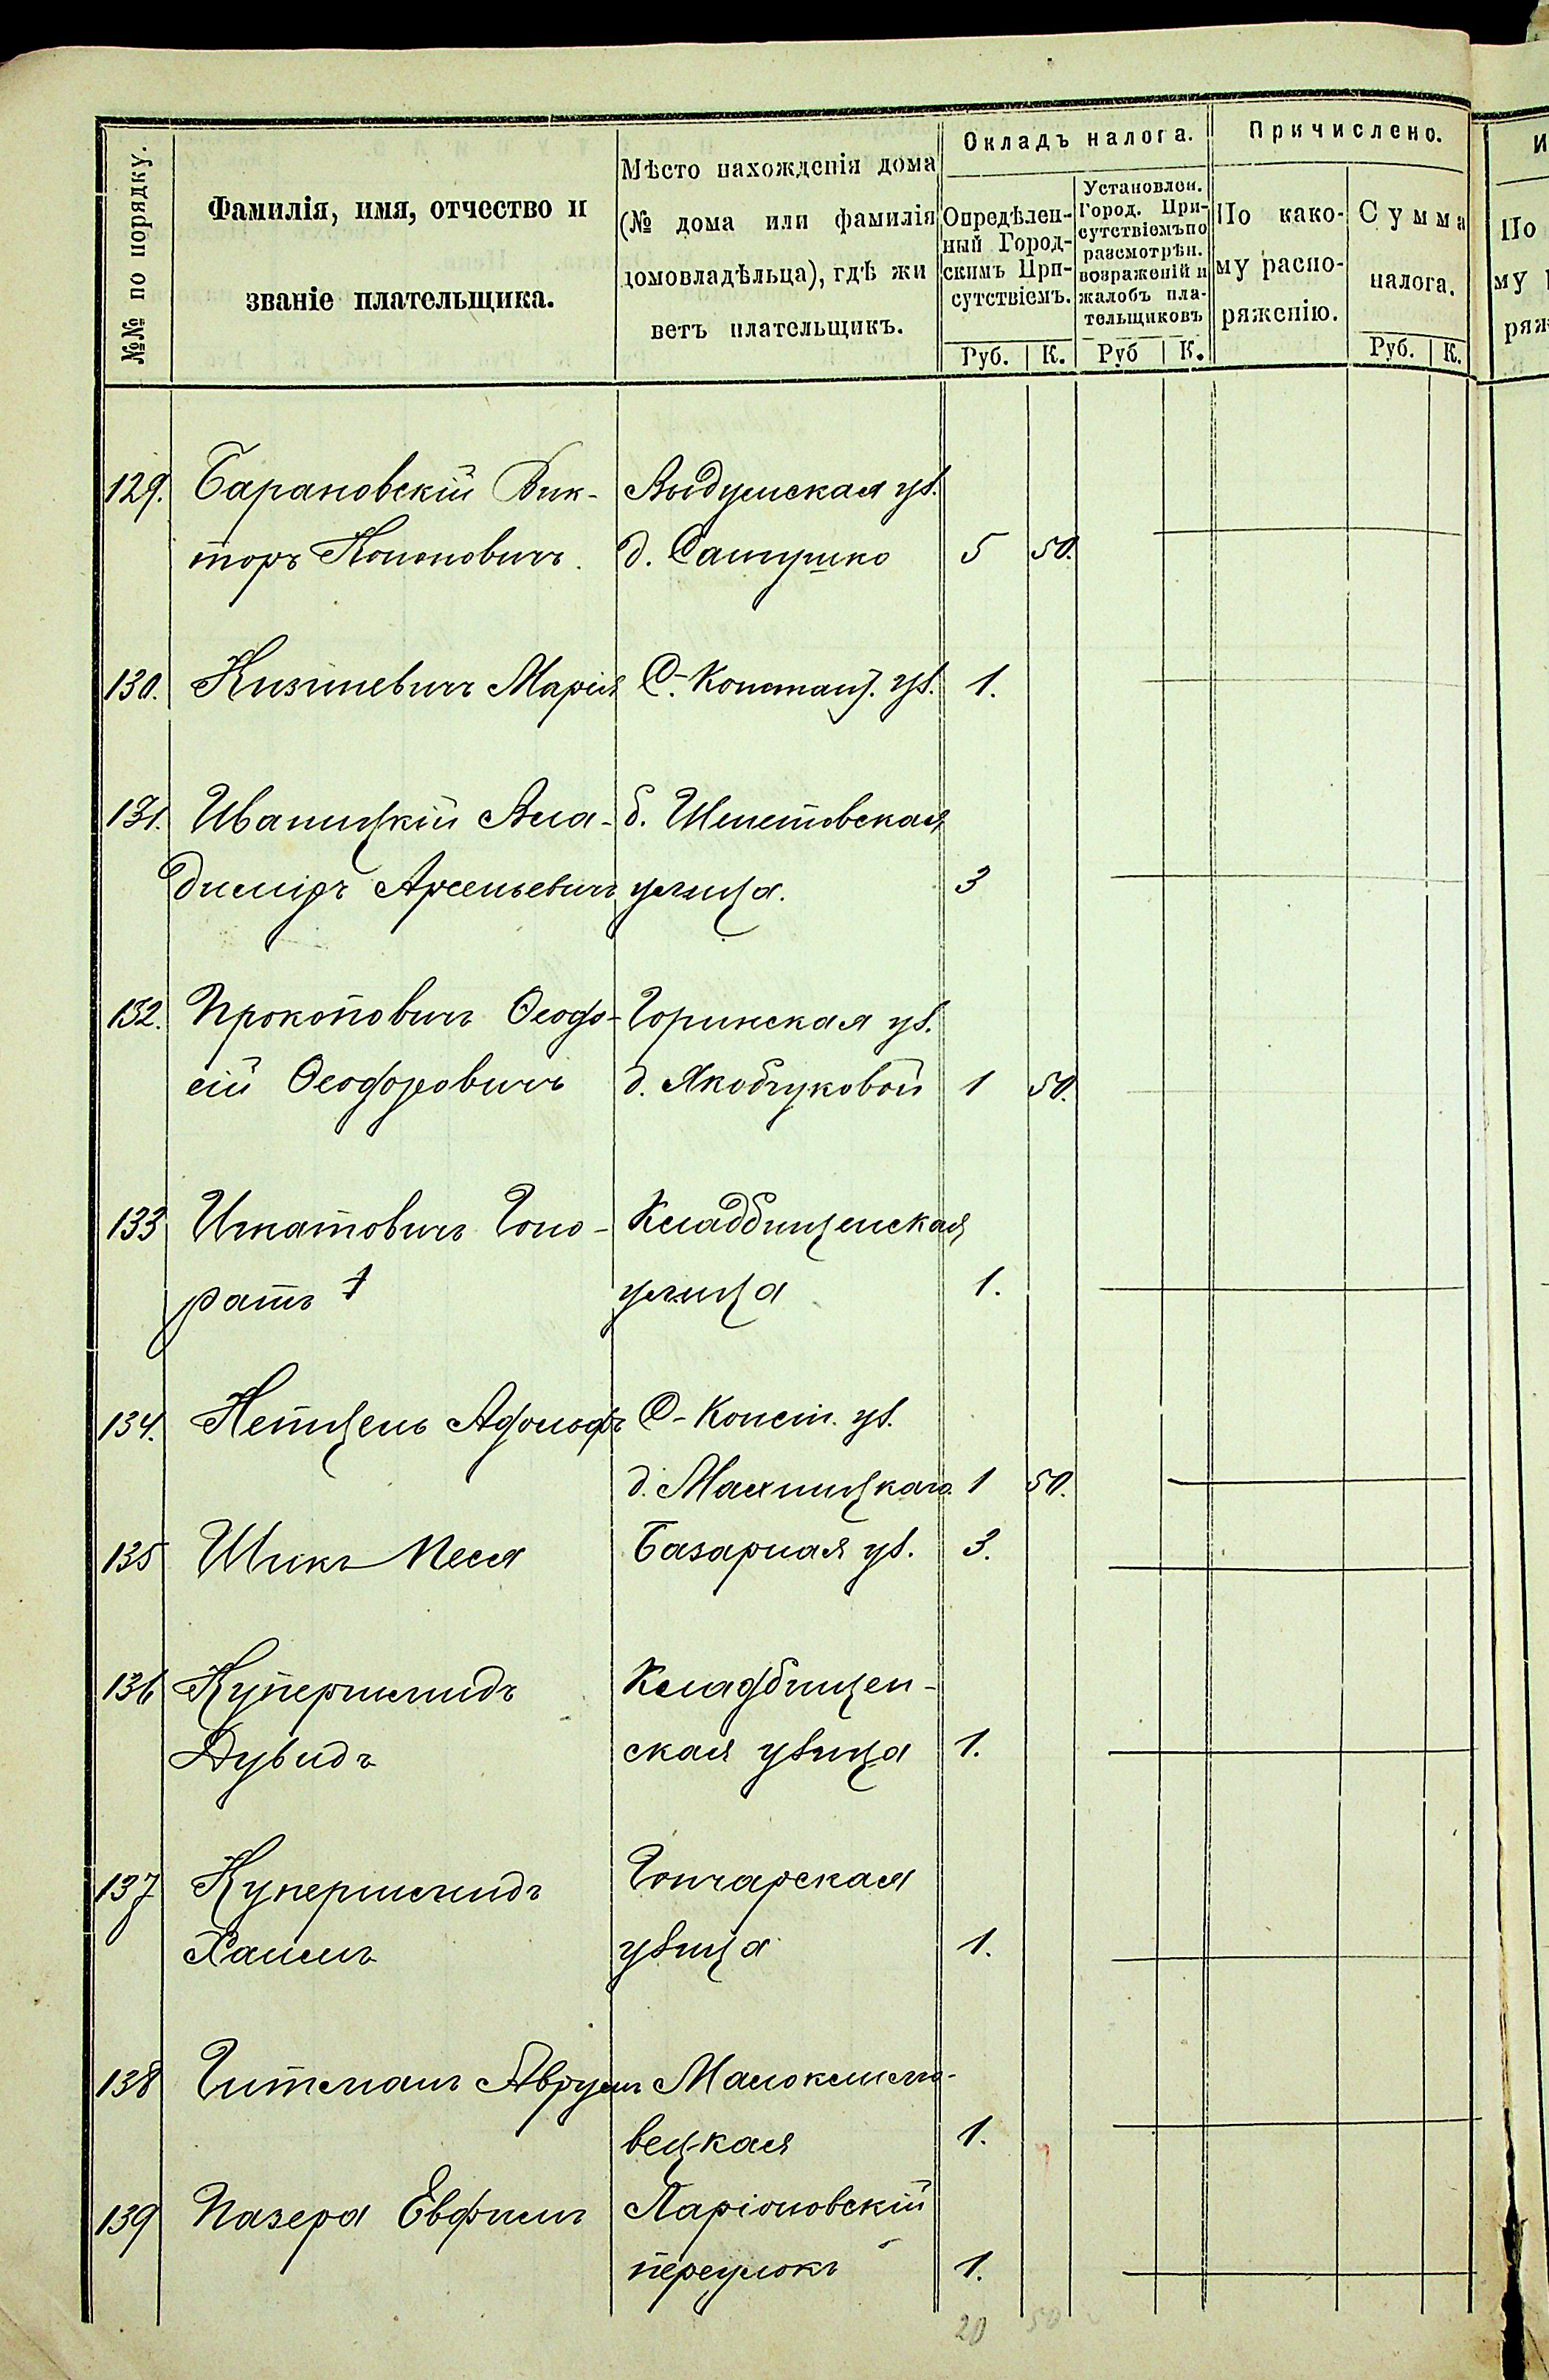 №№ по порядку.
Фамилія, имя, отчество и
званіе плательщика.
Мѣсто нахожденія дома
(№ дома или фамилія
домовладѣльца), гдѣ жи
ветъ плательщикъ.
Окладъ налога.
Опредѣлен-
ный Город-
скимъ При-
сутствіемъ.
Установлен.
Город. При-
сутствіемъ по
разсмотрѣн.
возраженій и
жалобъ пла-
тельщиковъ
Причислено.
По како-
му распо-
ряженію.
Сумма
налога.
Руб. К. Руб К. Руб. К.
И
По
му
ряж
129. Барановскій Вик-
торъ Кононовичъ.
Выдумская ул.
д. Сатушко 5 50.
130. Марія С.-Констант. ул. 1.
131. Иваницкій Вла-
диміръ Арсеньевичъ
б. Шепетовская
улица. 3
132. Прокоповичъ Ѳеодо-
сій Ѳеодоровичъ
Горинская ул.
д. Якобчуковой 1 50.
133 Игнатовичъ Гоно-
ратъ
Кладбищенская
улица 1.
134. Адольфъ С-Конст. ул.
д. Махницкаго 1 50.
135 Шикъ Песя Базарная ул. 3.
136 Купершмидъ
Дувидъ
Кладбищен-
ская улица 1.
137 Купершмидъ
Хаимъ
Гончарская
улица 1.
138 Гитманъ Аврумъ Малоклемо-
вецкая 1.
139 Пазера Евфимъ Ларіоновскій
переулокъ 1.
20 50